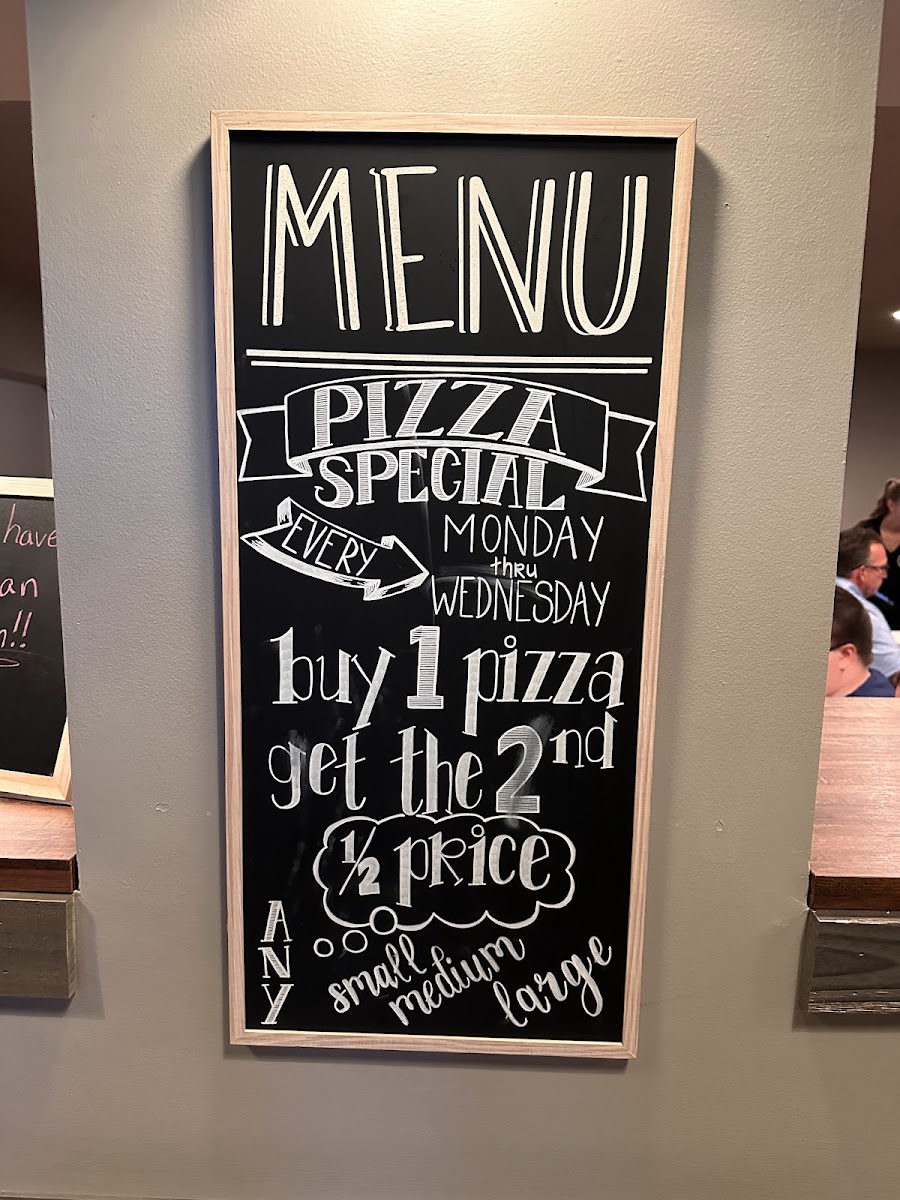 MENU
PIZZA
SPECIAL
EVERY
MONDAY
thru
WEDNESDAY
buy 1 pizza
get the 2nd
1/2 price
ANY
small
medium
large
have
an
!!